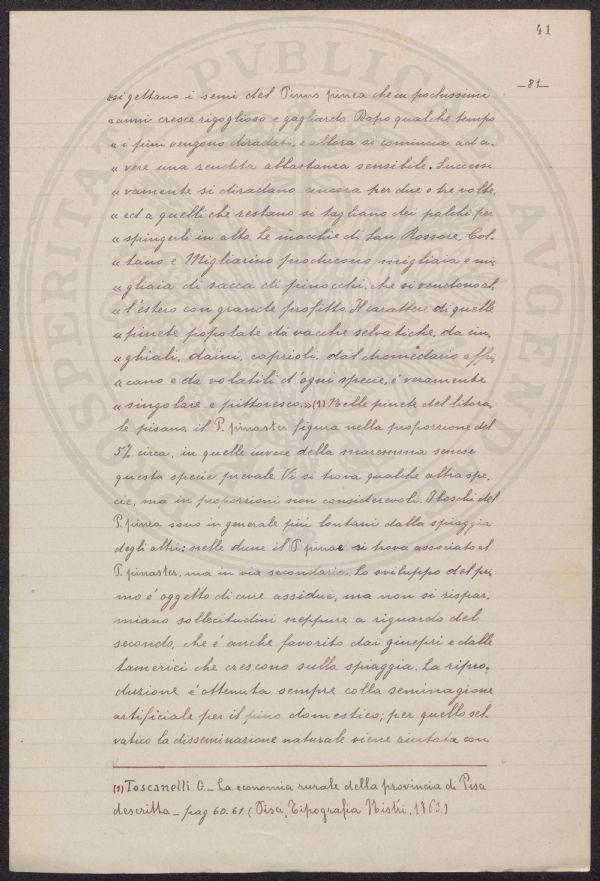 41
— 81 —
« si gettano i semi del Pinus pinea che in pochissimi
« anni cresce rigoglioso e gagliardo. Dopo qualche tempo
« i pini vengono diradati, e allora si comincia ad a-
« vere una rendita abbastanza sensibile. Successi
« vamente si diradano ancora per due o tre volte,
« ed a quelli che restano si tagliano dei palchi per
« spingerli in alto. Le macchie di San Rossore, Col-
« tano e Migliarino producono migliaia e mi-
« gliaia di sacca di pinocchi, che si vendono al-
« l'estero con grande profitto. Il carattere di quelle
« pinete popolate da vacche selvatiche, da cin-
« ghiali, daini, caprioli, dal dromedario affri-
« cano e da volatili d'ogni specie, é veramente
« singolare e pittoresco. » (1) Nelle pinete del litora-
le pisano il P. pinaster figura nella proporzione del
5% circa, in quelle invece della maremma senese
questa specie prevale. Vi si trova qualche altra spe-
cie, ma in proporzioni non considerevoli. I boschi del
P. pinea sono in generale piú lontani dalla spiaggia
degli altri: nelle dune il P. pinae si trova associato al
P. pinaster, ma in via secondaria. Lo sviluppo del pri-
mo é oggetto di cure assidue, ma non si rispar-
miano sollecitudini neppure a riguardo del
secondo, che é anche favorito dai ginepri e dalle
tamerici che crescono sulla spiaggia. La ripro-
duzione é ottenuta sempre colla seminagione
artificiale per il pino domestico; per quello sel-
vatico la disseminazione naturale viene aiutata con
(1) Toscanelli G. — La economia rurale della provincia di Pisa
descritta — pag 60. 61. (Pisa, Tipografia Nistri, 1863.)
PVBLIC
AVGEND
OSPERITAT